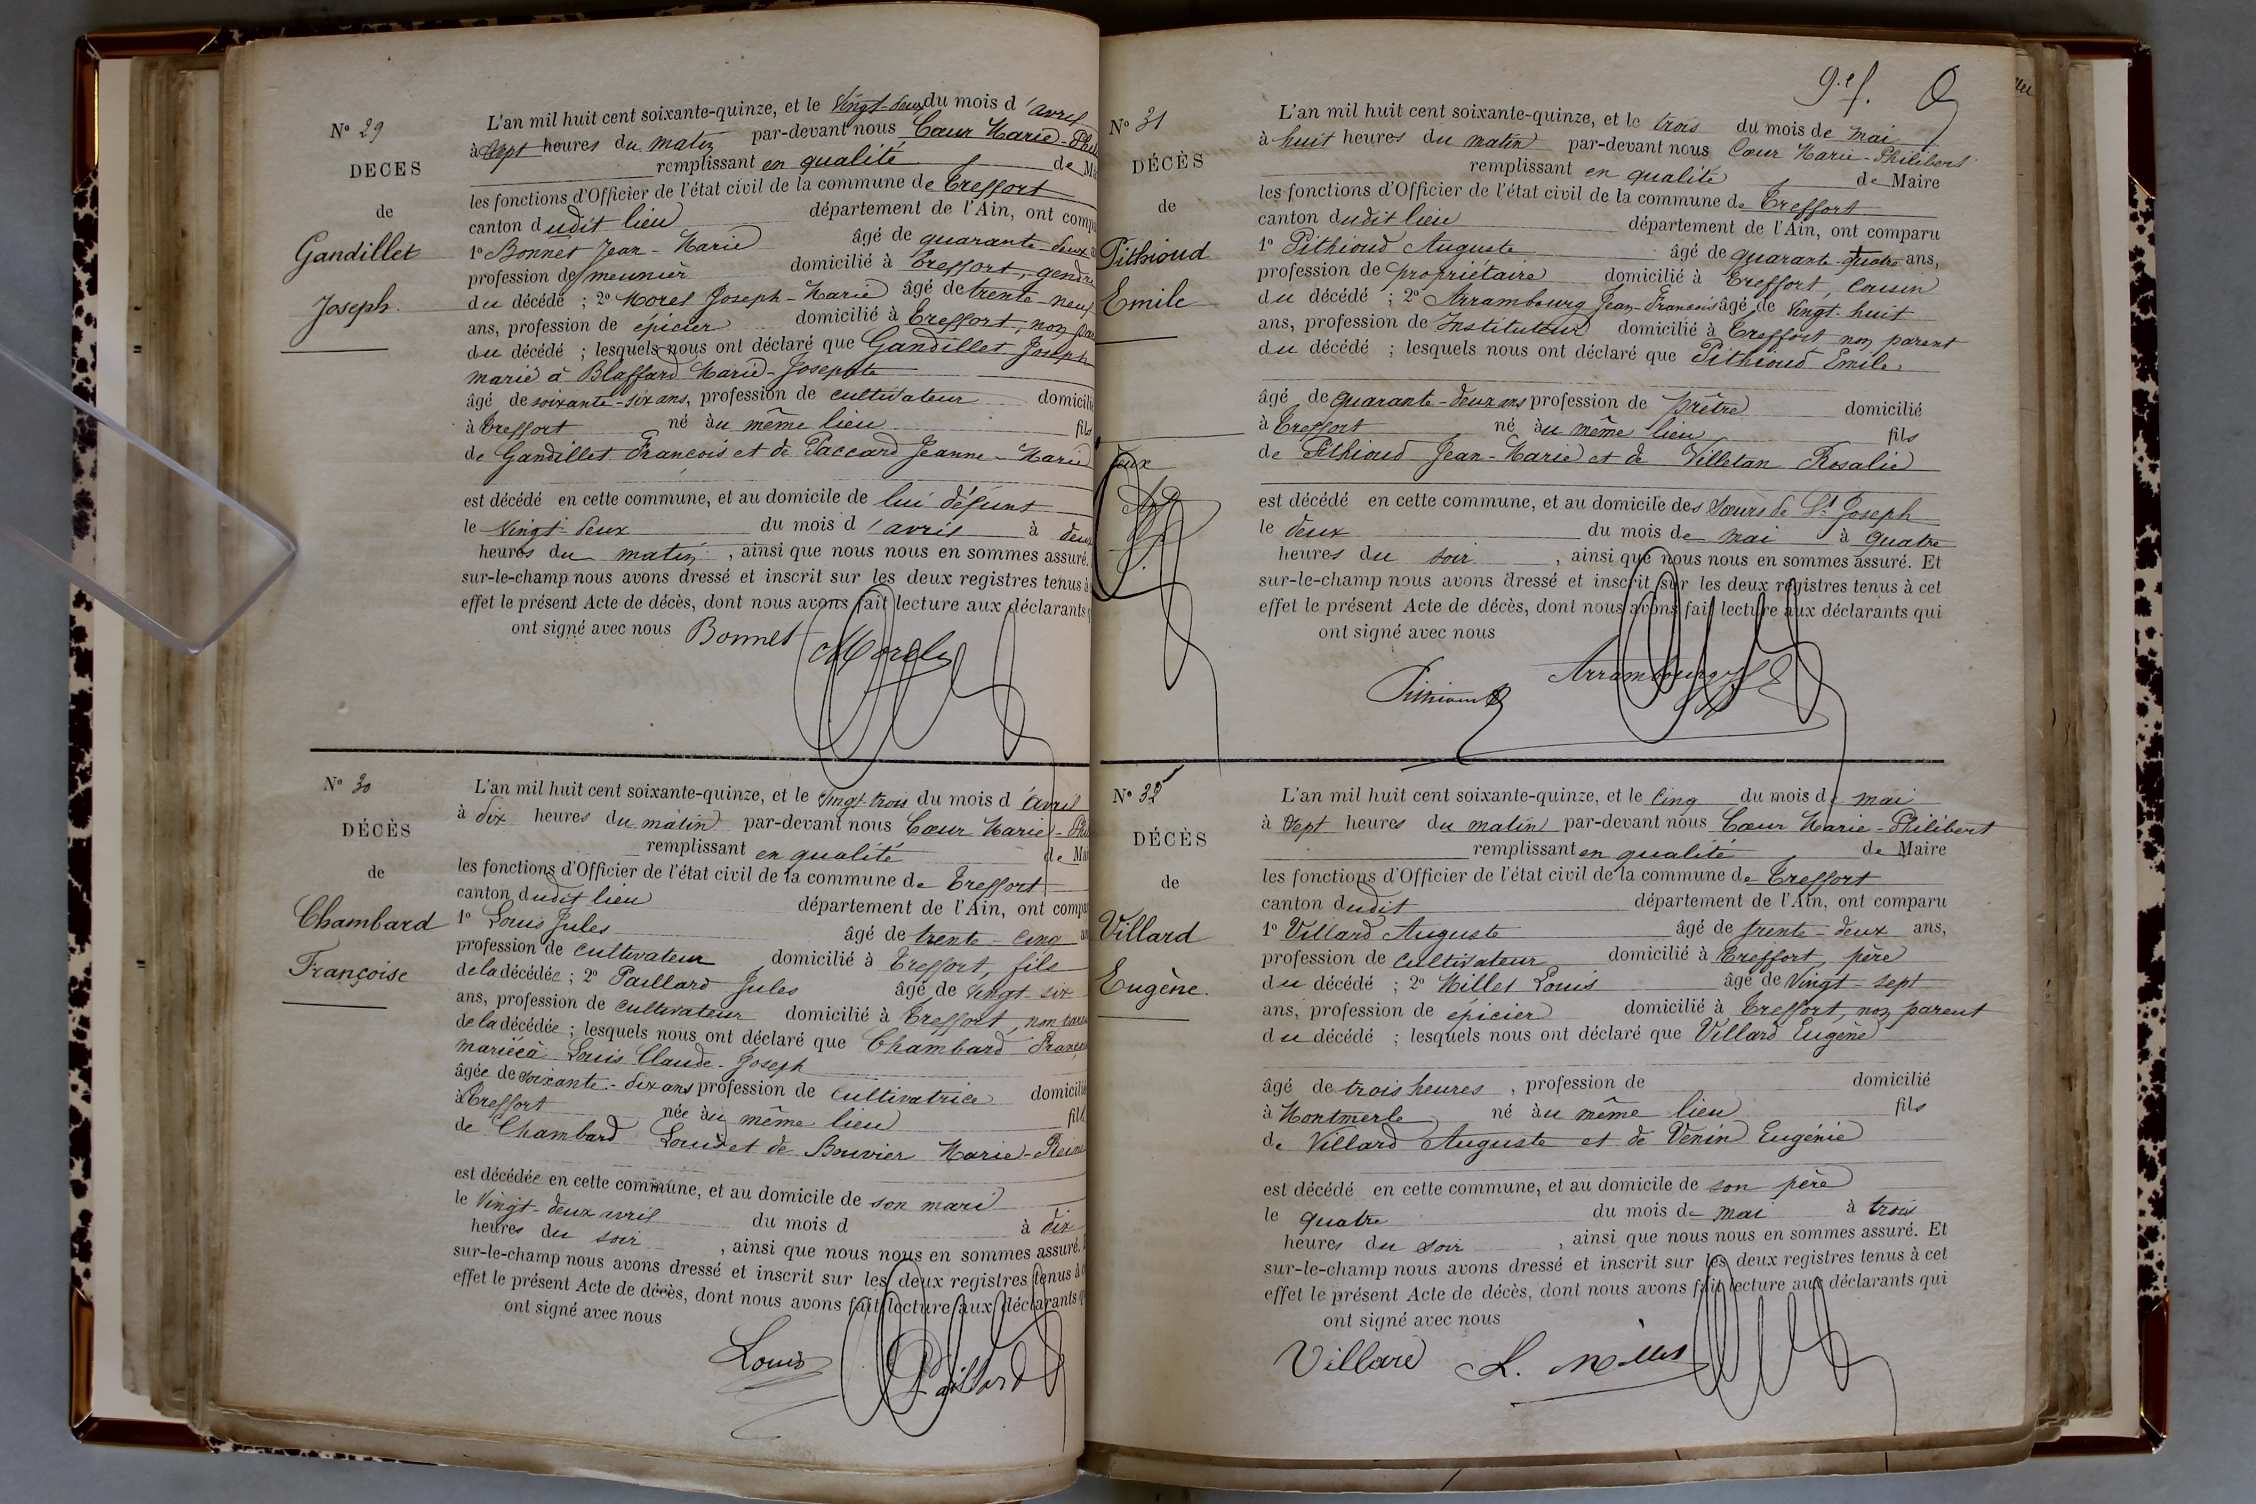 N° 29
DECES
de
Gandillet
Joseph.
L'an mil huit cent soixante-quinze, et le Vingt-deux du mois d'avril
à Sept heures du matin par-devant nous Cœur Marie-Phili
remplissant en qualité de Ma
les fonctions d'Officier de l'état civil de la commune de Treffort
canton dudit lieu département de l'Ain, ont compa
1° Bonnet Jean-Marie âgé de quarante-deux a
profession de meunier domicilié à Treffort, gendre
du décédé ; 2° Morel Joseph-Marie âgé de trente-neuf
ans, profession de épicier domicilié à Treffort, non par
du décédé ; lesquels nous ont déclaré que Gandillet Joseph
marié à Blaffard Marie-Josephte
âgé de soixante-six ans, profession de cultivateur domicilié
à Treffort né au même lieu fils
de Gandillet François et de Paccard Jeanne-Marie
est décédé en cette commune, et au domicile de lui défunt
le Vingt-deux du mois d'avril à deux
heures du matin, ainsi que nous nous en sommes assuré.
sur-le-champ nous avons dressé et inscrit sur les deux registres tenus à
effet le présent Acte de décès, dont nous avons fait lecture aux déclarants q
ont signé avec nous Bonnet Morel
N° 30
DÉCÈS
de
Chambard
Françoise
L'an mil huit cent soixante-quinze, et le Vingt-trois du mois d'avril
à dix heures du matin par-devant nous Cœur Marie-Phi
remplissant en qualité de Mai
les fonctions d'Officier de l'état civil de la commune de Treffort
canton dudit lieu département de l'Ain, ont compa
1° Louis Jules âgé de trente-cinq an
profession de cultivateur domicilié à Treffort, fils
de la décédée ; 2° Paillard Jules âgé de Vingt-six
ans, profession de cultivateur domicilié à Treffort, non paren
de la décédée ; lesquels nous ont déclaré que Chambard Franço
mariée à Louis Claude-Joseph
âgée de soixante-dix ans profession de cultivatrice domicilié
à Treffort née au même lieu fill
de Chambard Louis et de Bouvier Marie-Reine
est décédée en cette commune, et au domicile de son mari
le Vingt-deux avril du mois d à dix
heures du soir, ainsi que nous nous en sommes assuré.
sur-le-champ nous avons dressé et inscrit sur les deux registres tenus à c
effet le présent Acte de décès, dont nous avons fait lecture aux déclarants q
ont signé avec nous
Louis Paillard
9.e f.
N° 31
DÉCÈS
de
Pithioud
Emile
L'an mil huit cent soixante-quinze, et le trois du mois de mai
à huit heures du matin par-devant nous Cœur Marie-Philibert
remplissant en qualité de Maire
les fonctions d'Officier de l'état civil de la commune de Treffort
canton dudit lieu département de l'Ain, ont comparu
1° Pithioud Auguste âgé de quarante-quatre ans,
profession de propriétaire domicilié à Treffort, cousin
du décédé ; 2° Arrambourg Jean-François âgé de Vingt-huit
ans, profession de Instituteur domicilié à Treffort non parent
du décédé ; lesquels nous ont déclaré que Pithioud Emile
âgé de quarante-deux ans profession de prêtre domicilié
à Treffort né au même lieu fils
de Pithioud Jean-Marie et de Villetan Rosalie
est décédé en cette commune, et au domicile des Sœurs de St Joseph
le deux du mois de mai à quatre
heures du soir, ainsi que nous nous en sommes assuré. Et
sur-le-champ nous avons dressé et inscrit sur les deux registres tenus à cet
effet le présent Acte de décès, dont nous avons fait lecture aux déclarants qui
ont signé avec nous
Pithioud Arrambourg
N° 32
DÉCÈS
de
Villard
Eugène.
L'an mil huit cent soixante-quinze, et le Cinq du mois de mai
à Sept heures du matin par-devant nous Cœur Marie-Philibert
remplissant en qualité de Maire
les fonctions d'Officier de l'état civil de la commune de Treffort
canton dudit département de l'Ain, ont comparu
1° Villard Auguste âgé de trente-deux ans,
profession de cultivateur domicilié à Treffort, père
du décédé ; 2° Millet Louis âgé de Vingt-sept
ans, profession de épicier domicilié à Treffort, non parent
du décédé ; lesquels nous ont déclaré que Villard Eugène
âgé de trois heures, profession de domicilié
à Montmerle né au même lieu fils
de Villard Auguste et de Venin Eugénie
est décédé en cette commune, et au domicile de son père
le quatre du mois de mai à trois
heures du soir, ainsi que nous nous en sommes assuré. Et
sur-le-champ nous avons dressé et inscrit sur les deux registres tenus à cet
effet le présent Acte de décès, dont nous avons fait lecture aux déclarants qui
ont signé avec nous
Villard L. Millet